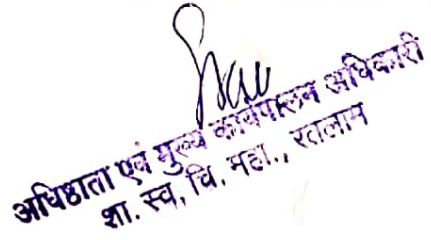 अधिष्ठाता एवं मुख्य कार्यपालन अधिकारी
शा. स्व. चि. महा., रतलाम